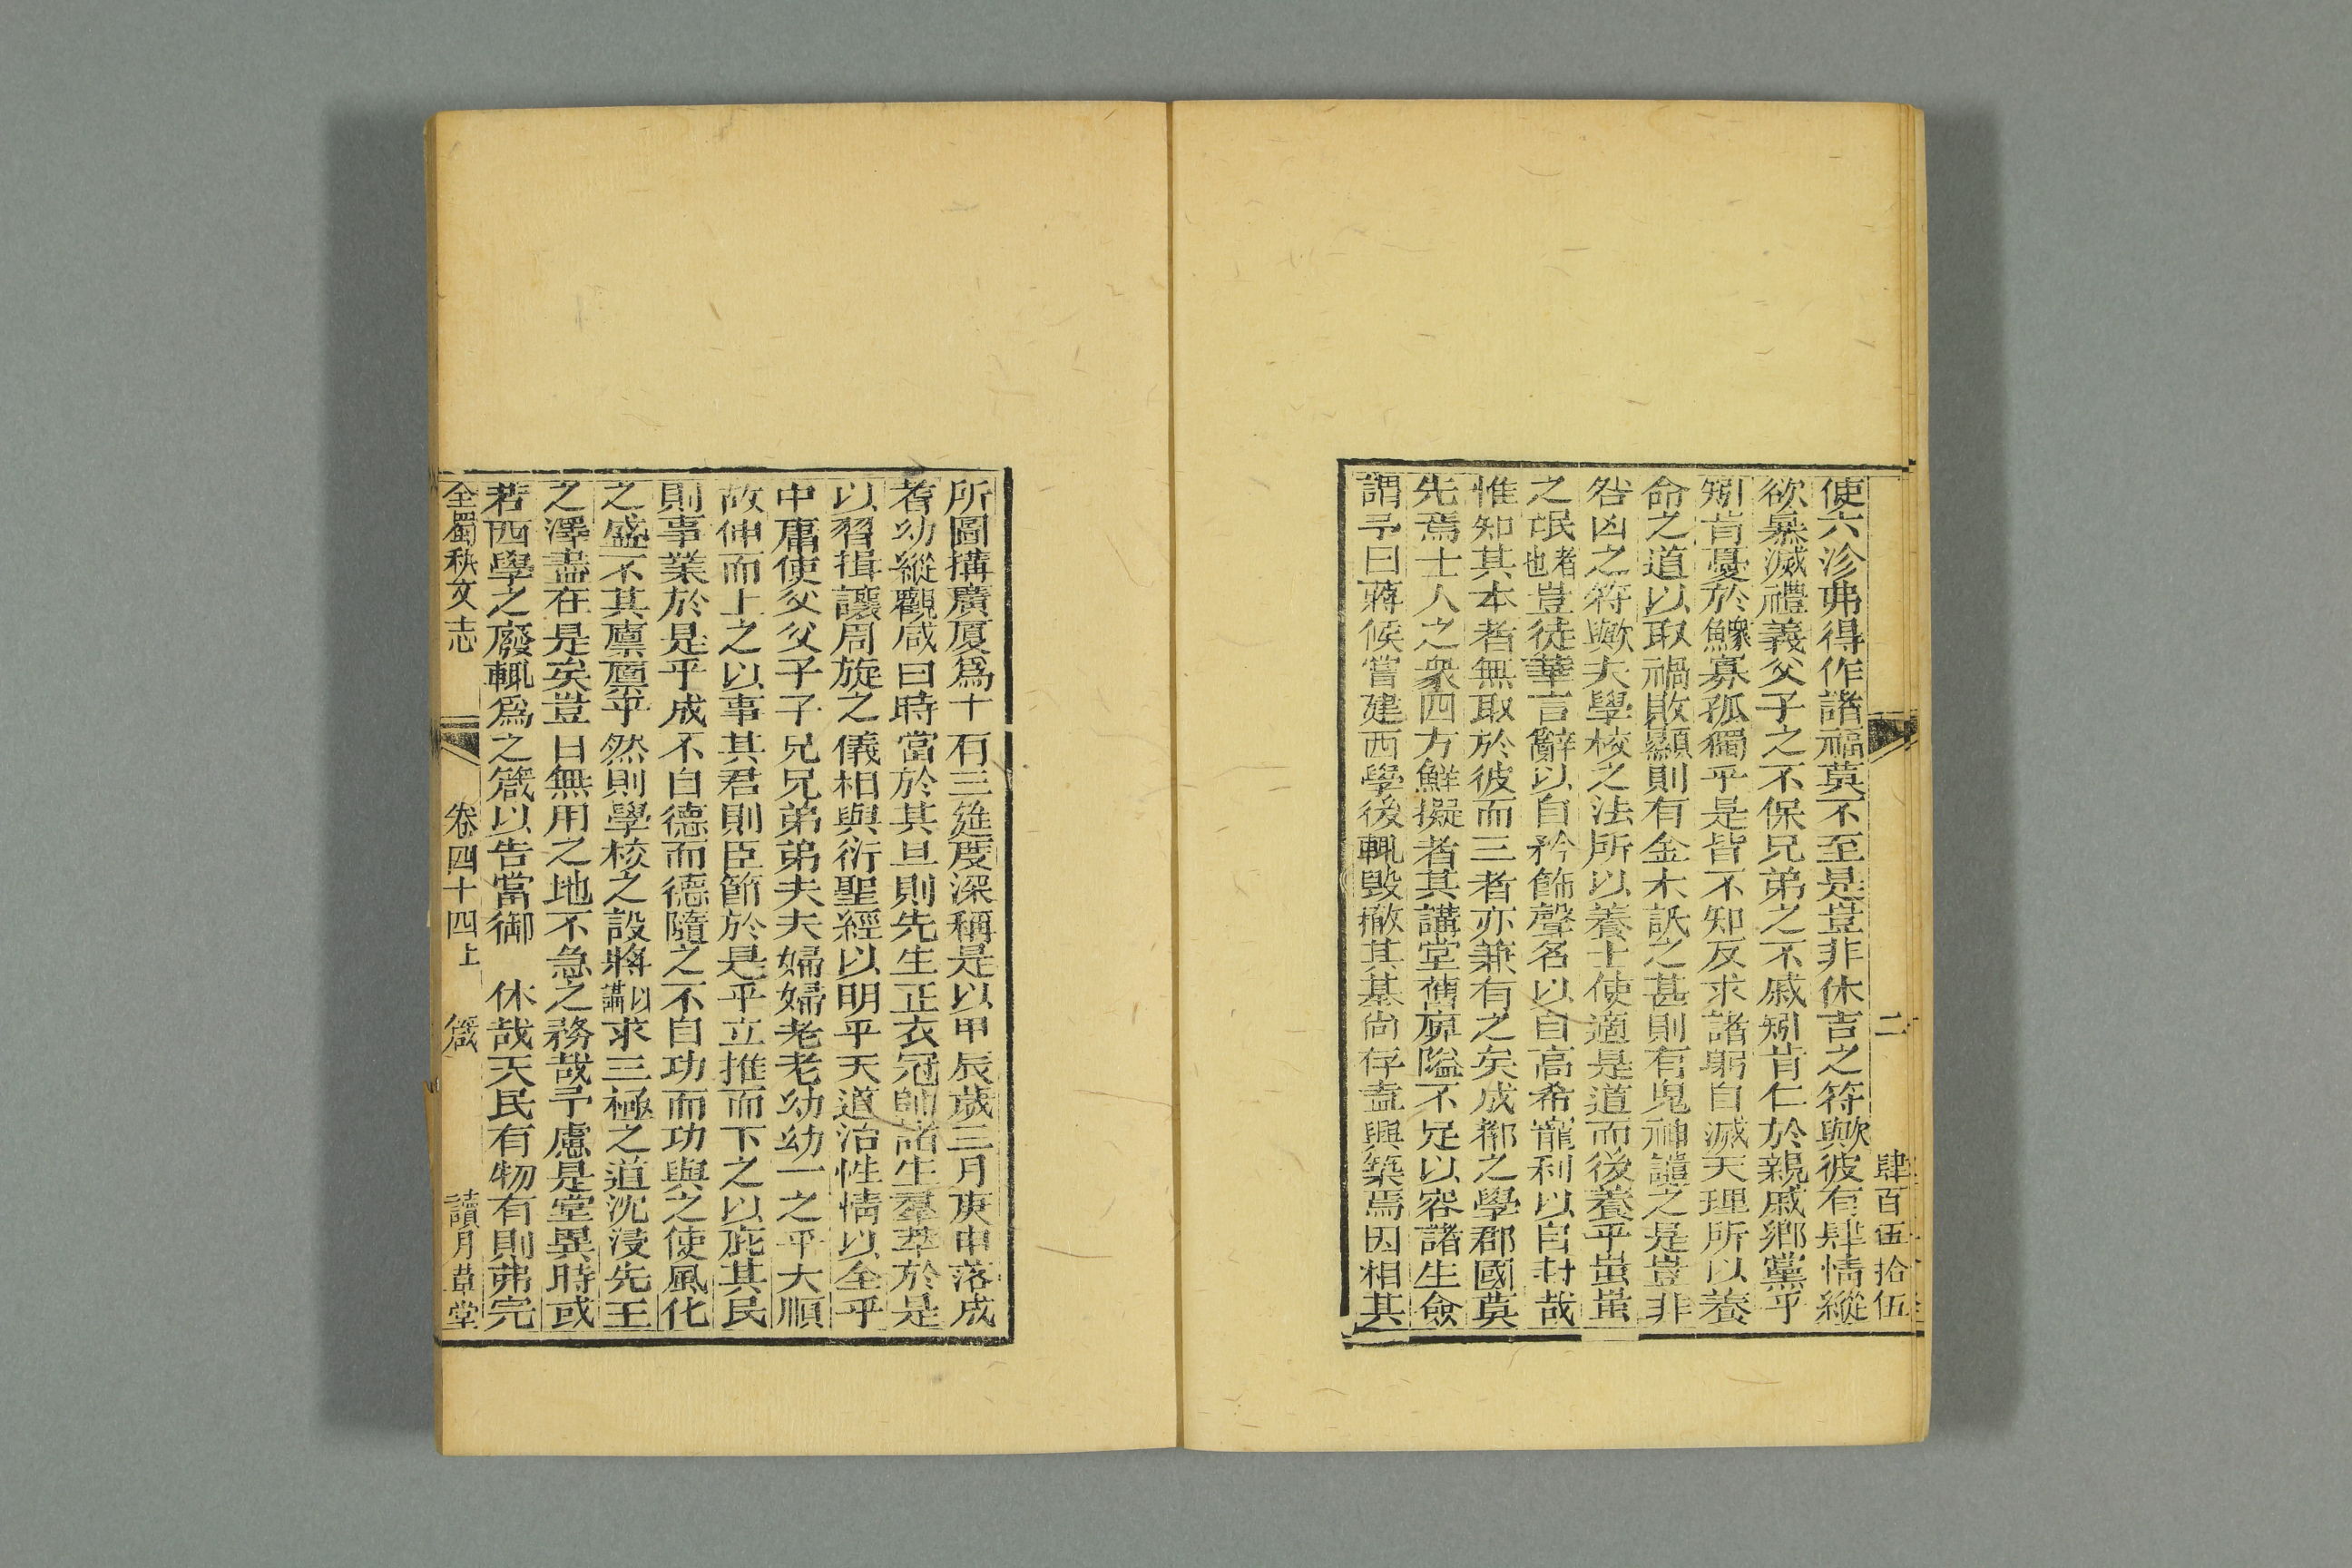 二　肆百伍拾伍
使六沴弗得作諧福莫不至是豈非休吉之符歟彼有肆情縱
欲㬥滅禮義父子之不保兄弟之不戚矧肯仁於親戚鄉黨乎
矧肯憂於鰥寡孤獨乎是皆不知反求諸躬自滅天理所以養
命之道以取禍敗顯則有金木訊之甚則有鬼神譴之是豈非
咎凶之符歟夫學校之法所以養士使適是道而後養乎蚩蚩
之氓也者豈徒華言辭以自矜飾聲名以自高希寵利以自封哉
惟知其本者無取於彼而三者亦兼有之矣成都之學郡國莫
先焉士人之衆四方鮮擬者其講堂舊庳隘不足以容諸生僉
謂予曰蔣侯嘗建西學後輒毀撤其基尙存盍興築焉因相其
所圖搆廣厦爲十有三筵度深稱是以甲辰歲三月庚申落成
耆幼縱觀咸曰時當於其旦則先生正衣冠帥諸生羣萃於是
以習揖讓周旋之儀相與衍聖經以明乎天道治性情以全乎
中庸使父父子子兄兄弟弟夫夫婦婦老老幼幼一之乎大順
故伸而上之以事其君則臣節於是乎立推而下之以庇其民
則事業於是乎成不自德而德隨之不自功而功與之使風化
之盛不其廪廪乎然則學校之設將以講求三極之道沈浸先王
之澤盡在是矣豈曰無用之地不急之務哉予慮是堂異時或
若西學之廢輒爲之箴以告當御　休哉天民有物有則弗完
全蜀秇文志　卷四十四上　箴　讀月草堂